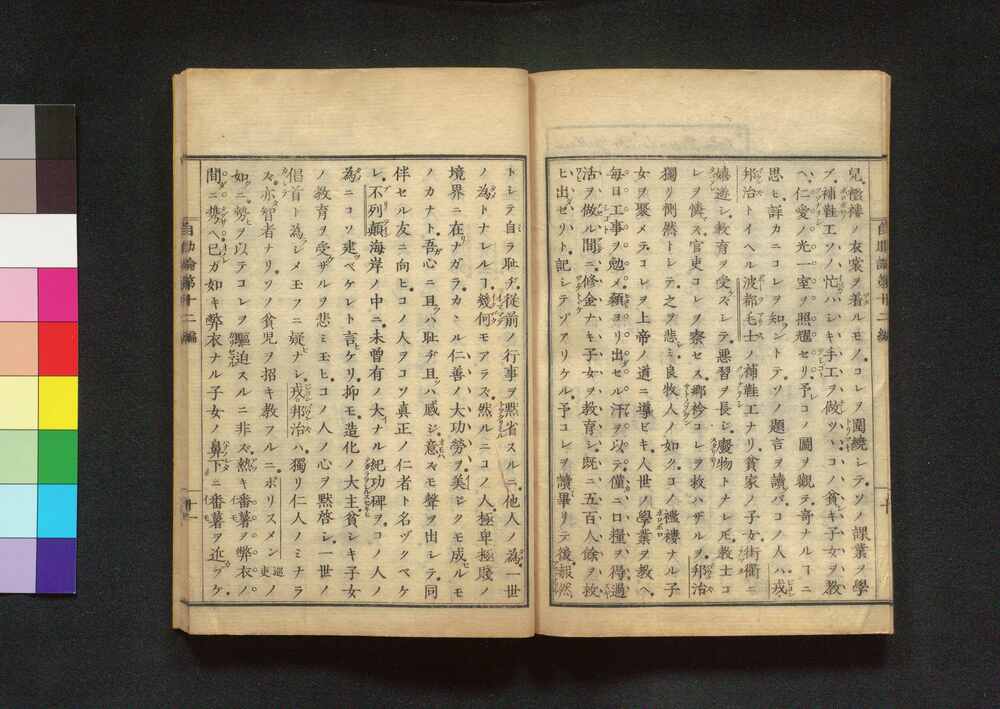 兒襤褸ノ衣裳ヲ着ルモノコレヲ圍繞シテソノ課業ヲ學
ブ補鞋工ソノ忙ハシキ手工ヲ做ツヽコノ貧キ子女ヲ教
ヘ仁愛ノ光一室ヲ照耀セリ予コノ圖ヲ觀テ奇ナルヿニ
思ヒ詳カニコレヲ知ントテソノ題言ヲ讀バコノ人ハ戎
邦治トイヘル波都毛士ノ補鞋工ナリ貧家ノ子女街衢ニ
嬉遊シ教育ヲ受ズシテ悪習ヲ長シ癈物トナレ𪜈教士コ
レヲ憐ズ官吏コレヲ察セズ郷紳コレヲ救ハザルヲ邦治
獨リ惻然トシテ之ヲ悲ミ良牧人ノ如クコノ襤褸ナル子
女ヲ聚メテコレヲ上帝ノ道ニ導ビキ人世ノ學業ヲ教ヘ
毎日工事ヲ勉メ額ヨリ出セル汗ヲ以テ僅ニ口糧ヲ得過
活ヲ做ル間ニ修金ナキ子女ヲ教育シ既ニ五百人餘ヲ救
ヒ出ゼリト記シテゾアリケル予コレヲ讀畢リテ後報然
トシテ自ラ恥ヂ從前ノ行事ヲ黙省スルニ他人ノ為一世
ノ為トナレルヿ幾何モアラズ然ルニコノ人極卑極賤ノ
境界ニ在ナガラカヽル仁善ノ大功勞ヲ美シクモ成ルモ
ノカナト吾心ニ且ハ恥ヂ且ハ感ジ意ズモ聲ヲ出シテ同
伴セル友ニ向ヒコノ人ヲコソ真正ノ仁者ト名ヅクベケ
レ不列顛海岸ノ中ニ未曾有ニ大ナル紀功碑ヲコノ人ノ
為ニコソ建ベケレト言ケリ抑モ造化ノ大主貧シキ子女
ノ教育ヲ受ザルヲ悲ミ玉ヒコノ人ノ心ヲ黙啓シ一世ノ
倡首ト為シメ玉フニ疑ナシ戎邦治ハ獨リ仁人ノミナラ
ズ亦智者ナリソノ貧児ヲ招キ教フルニポリスメン巡吏ノ
如ニ勢ヲ以テコレヲ驅迫スルニ非ズ熱キ番薯ヲ弊衣ノ
間ニ携ヘ已ガ如キ弊衣ナル子女ノ鼻下ニ番薯ヲ近ヅケ
自助論第十二編
十一